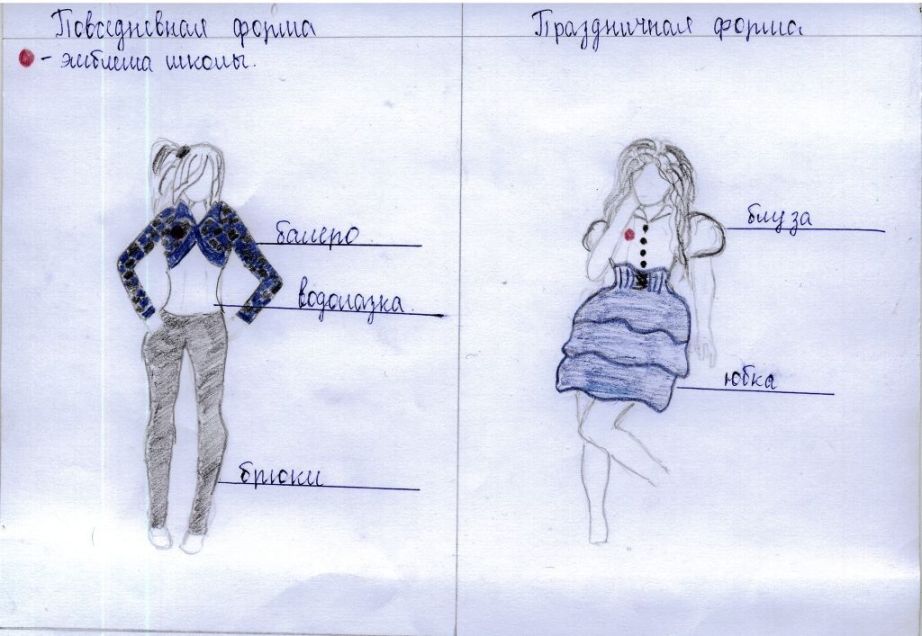 Повседневная форма
- эмблема школы.
балеро
водолазка.
брюки
Праздничная форма.
блуза
юбка